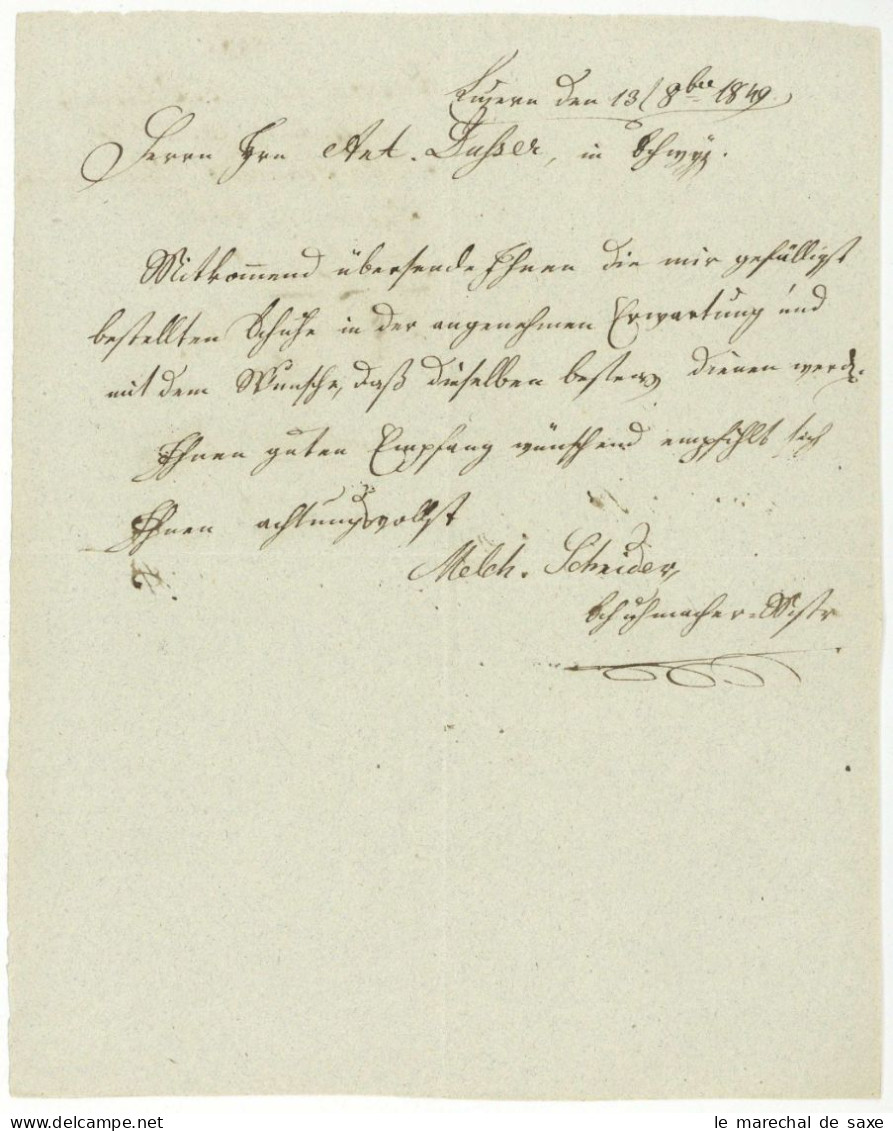 Luzern den 13/8bre 1849.
Herrn Hrn Ant. Dusser, in Schwyz.
Mitkom̅end übersende Ihnen die mir gefälligst
bestellten Schuhe in der angenehmen Erwartung und
mit dem Wunsche, daß dieselben bestens dienen werd.
Ihnen guten Empfang wünschend empfihlt sich
Ihnen achtungsvollst
Melch. Schnider,
Schuhmacher-Mstr
le marechal de saxe